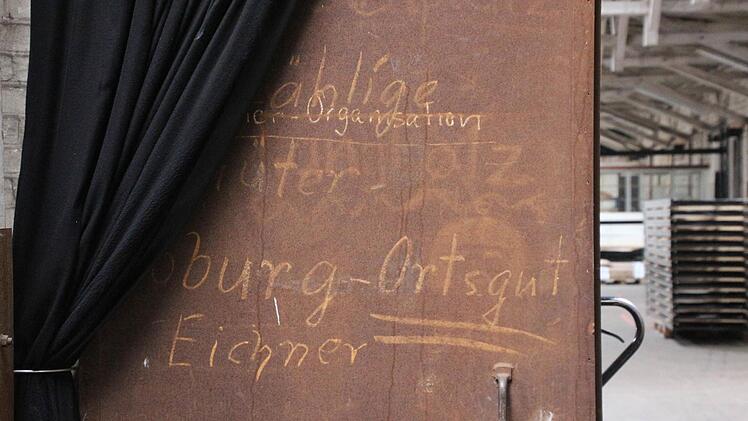 ählige
er-Organisation
üter-
oburg-Ortsgut
Eichner